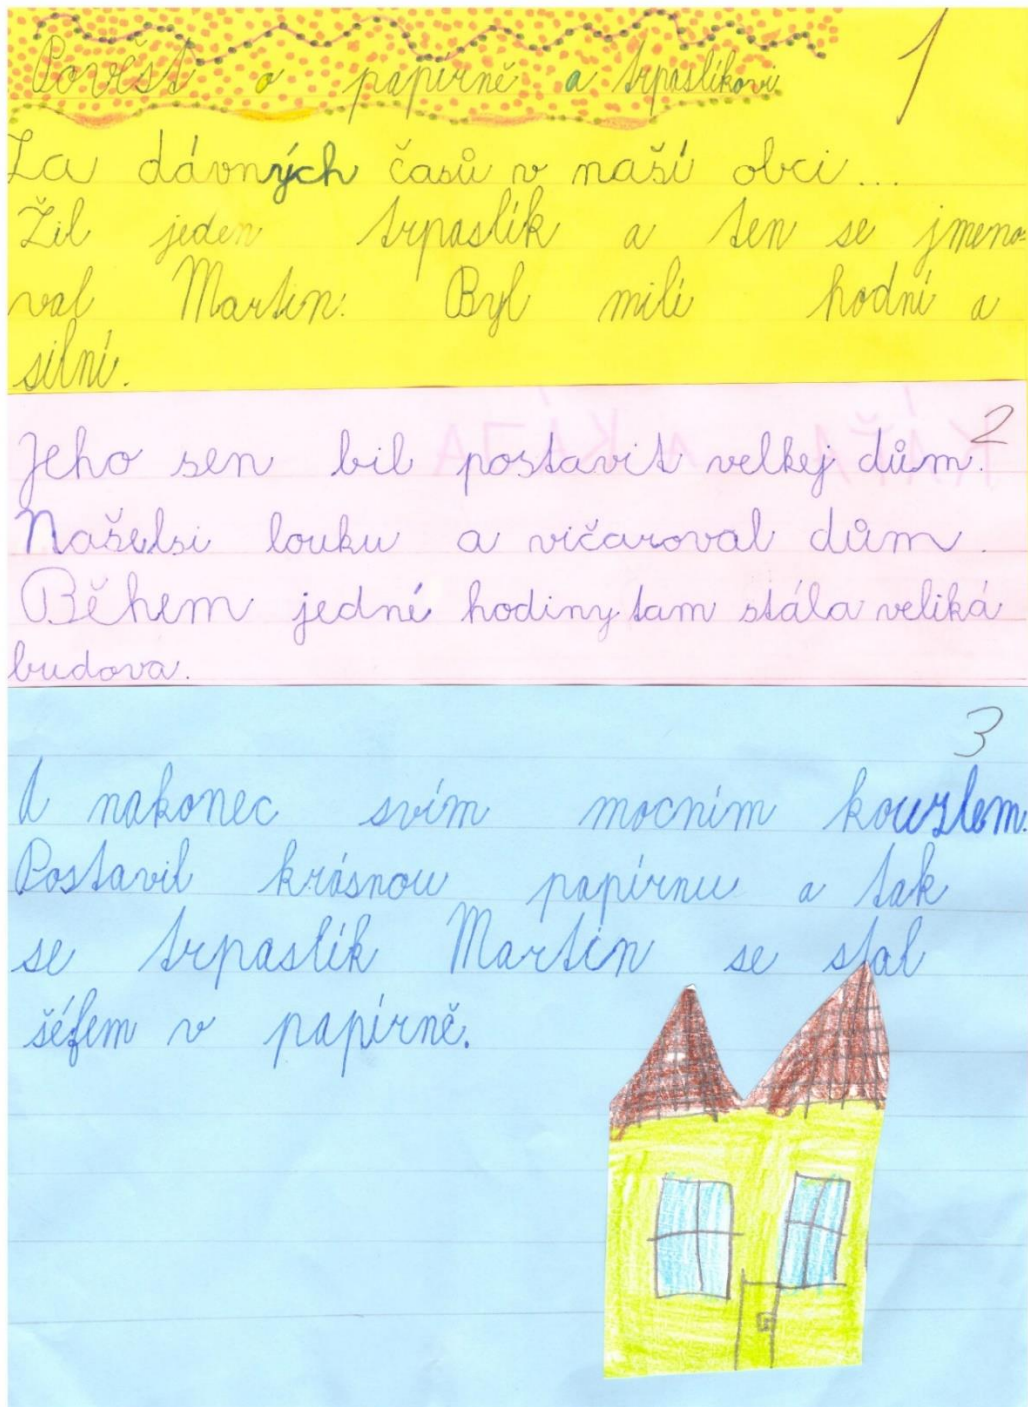 1
Pověst o papírně a trpaslíkovi
Za dávných časů v naší obci...
Žil jeden trpaslík a ten se jmeno-
val Martin. Byl milí hodní a
silní.
2
Jeho sen bil postavit velkej dům.
Našelsi louku a vičaroval dům.
Během jedné hodiny tam stála veliká
budova.
3
A nakonec svím mocním kouzlem.
Postavil krásnou papírnu a tak
se trpaslík Martin se stal
šéfem v papírně.